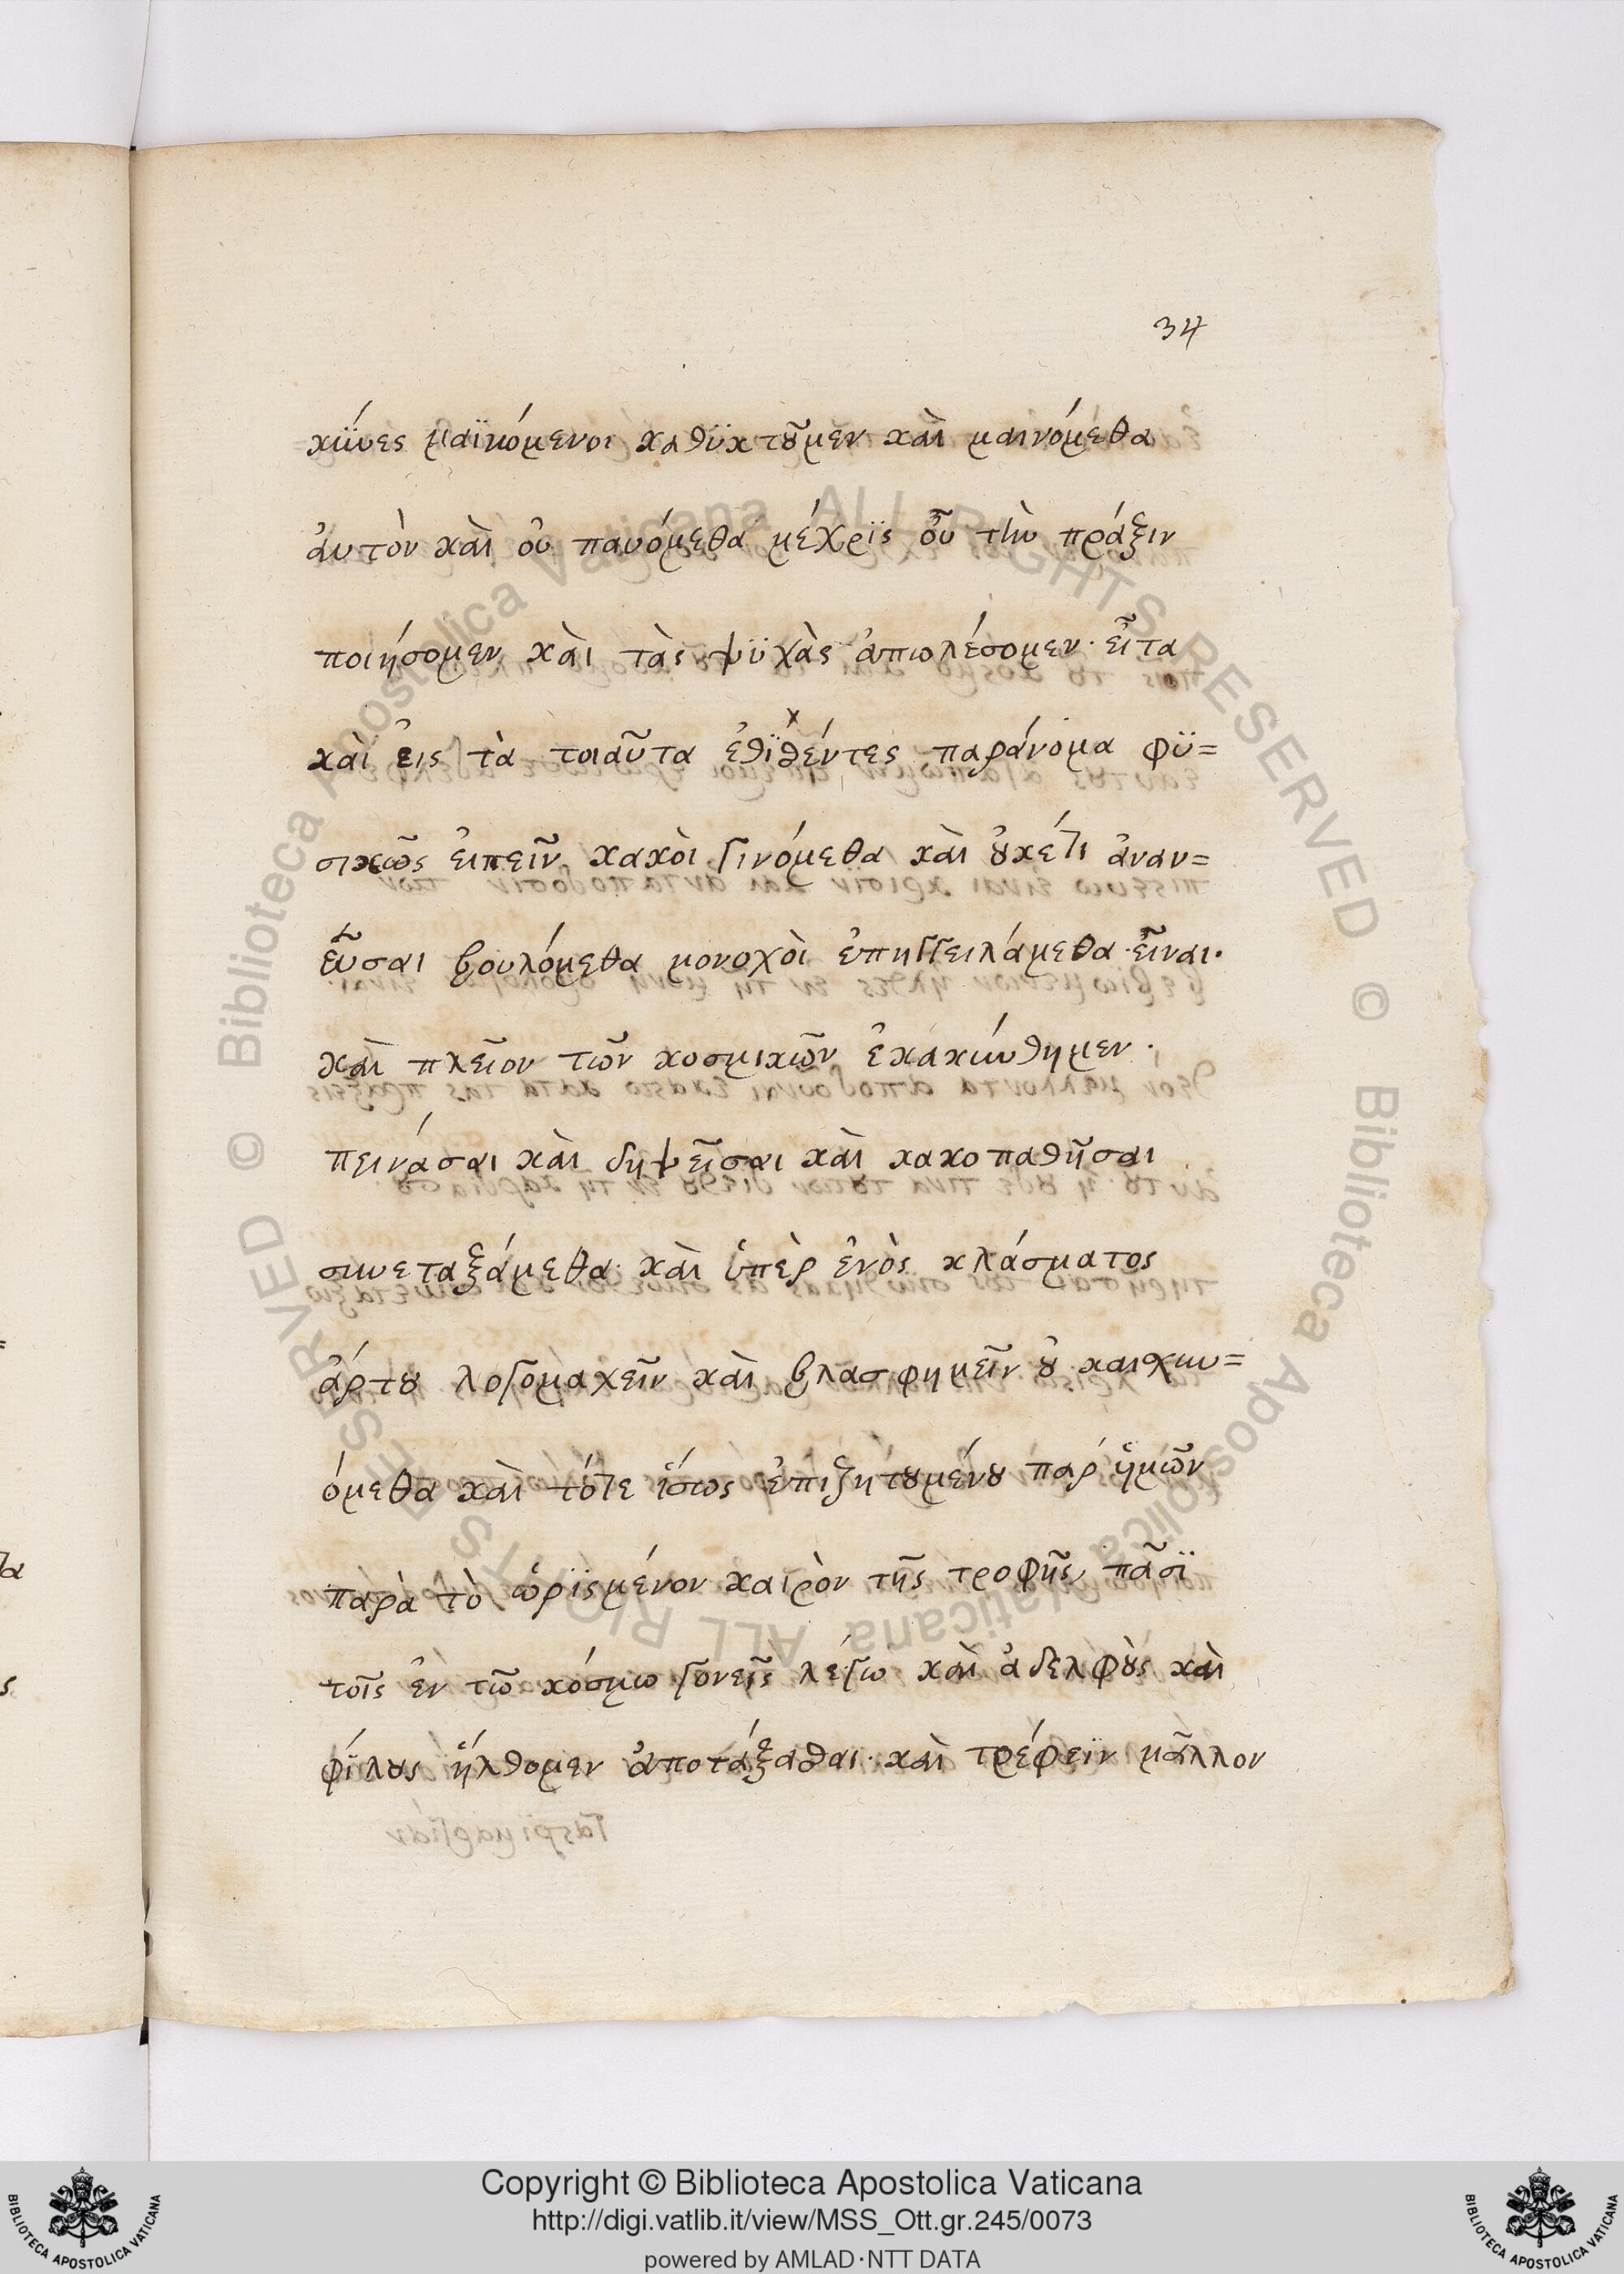 34
κύνες μαϊνόμενοι καθϋκτοῦμεν καὶ μαινόμεθα
ἀυτὸν καὶ οὐ παυόμεθα μέχρϊς οὗ τὴν πράξιν
ποιήσομεν καὶ τὰς ψϋχὰς ἀπωλέσομεν· εἶτα
καὶ ἐις τὰ τοιαῦτα ἐθϊθέντες παράνομα φϋ=
χ
σικῶς ἐιπεῖν κακὸι γινόμεθα καὶ οὐκέτι ἀναν=
εῦσαι βουλόμεθα μοναχὸι ἐπηγγειλάμεθα εἶναι·
καὶ πλεῖον τῶν κοσμικῶν ἐκακύνθημεν·
πεινάσαι καὶ δηψεῖσαι καὶ κακοπαθῆσαι
συνεταξάμεθα· καὶ ὑπὲρ ἑνὸς κλάσματος
ἄρτου λογομαχεῖν καὶ βλασφημεῖν οὐκ αισχυν=
όμεθα καὶ τότε ἴσως ἐπιζητουμένου παρ' ἡμῶν
παρὰ τὸ ὡρϊσμένον καιρὸν τῆς τροφῆς πᾶσϊ
τοῖς ἐν τῶ κόσμω γονεῖς λέγω καὶ ἀδελφοὺς καὶ
φίλους ἤλθομεν ἀποτάξασθαι· καὶ τρέφεϊν μᾶλλον
Copyright © Biblioteca Apostolica Vaticana
http://digi.vatlib.it/view/MSS_Ott.gr.245/0073
powered by AMLAD·NTT DATA
BIBLIOTECA APOSTOLICA VATICANA
BIBLIOTECA APOSTOLICA VATICANA
© Biblioteca Apostolica Vaticana ALL RIGHTS RESERVED
© Biblioteca Apostolica Vaticana ALL RIGHTS RESERVED